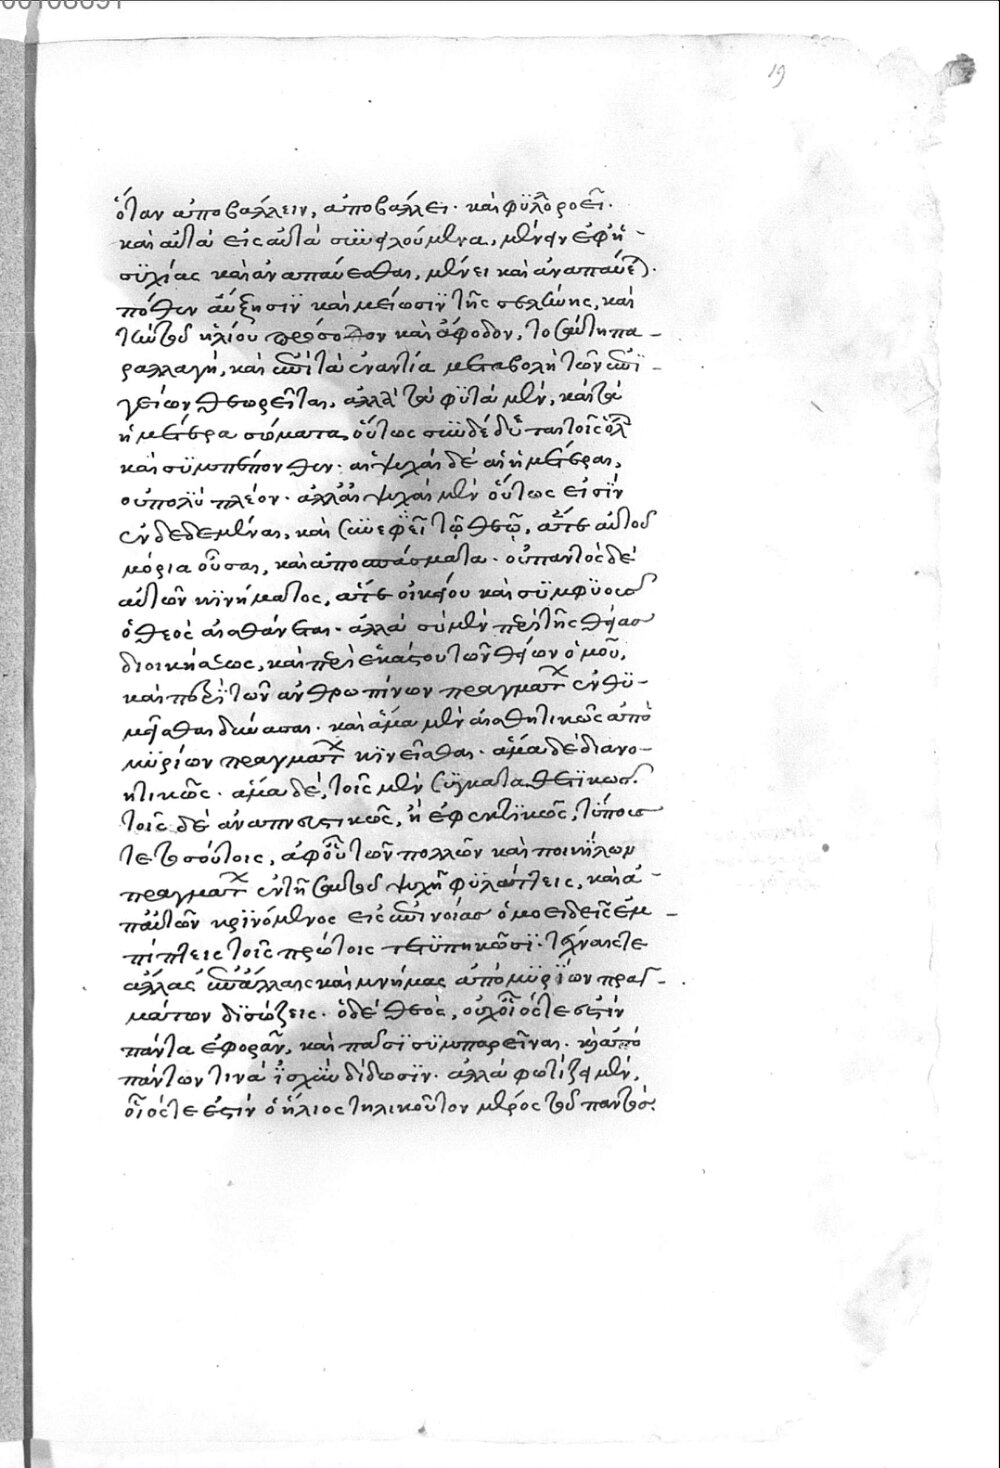 19
ὅταν ἀποβάλλειν, ἀποβάλλει· καὶ φυλλοροεῖ·
καὶ αὐτὰ εἰς αὐτὰ συνειλούμενα, μένειν ἐφ' ἡ-
συχίας καὶ ἀναπαύεσθαι, μένει καὶ ἀναπαύεται·
πόθεν αὔξησιν καὶ μείωσιν τῆς σελήνης, καὶ
τὴν τοῦ ἡλίου πρόσοδον καὶ ἄφοδον, τοσαύτη πα-
ραλλαγὴ, καὶ ἐπὶ τὰ ἐναντία μεταβολὴ τῶν ἐπι-
γείων θεωρεῖται, ἀλλὰ τὰ φυτὰ μὲν, καὶ τὰ
ἡμέτερα σώματα, οὕτως συνδέδεται τοῖς ὅλοις
καὶ συμπέπονθεν· αἱ ψυχαὶ δὲ αἱ ἡμέτεραι,
οὐ πολὺ πλέον· ἀλλ' αἱ ψυχαὶ μὲν οὕτως εἰσὶν
ἐνδεδεμέναι, καὶ συναφεῖς τῷ θεῷ, ἅτε αὐτοῦ
μόρια οὖσαι, καὶ ἀποσπάσματα· οὐ παντὸς δὲ
αὐτῶν κινήματος, ἅτε οἰκείου καὶ συμφυοῦς
ὁ θεὸς αἰσθάνεται· ἀλλὰ σὺ μὲν περὶ τῆς θείας
διοικήσεως, καὶ περὶ ἑκάστου τῶν θείων ὁμοῦ,
καὶ περὶ τῶν ἀνθρωπίνων πραγμάτων ἐνθυ-
μεῖσθαι δύνασαι· καὶ ἅμα μὲν αἰσθητικῶς ἀπὸ
μυρίων πραγμάτων κινεῖσθαι· ἅμα δὲ διανο-
ητικῶς· ἅμα δὲ, τοῖς μὲν συγκαταθετικῶς·
τοῖς δὲ ἀνανευστικῶς, ἢ ἐφεκτικῶς, τύπους
τε τοσούτους, ἀφ' οὕτω πολλῶν καὶ ποικίλων
πραγμάτων ἐν τῇ σαυτοῦ ψυχῇ φυλάττεις, καὶ ἀ-
π' αὐτῶν κινούμενος εἰς ἐπινοίας ὁμοειδεῖς ἐμ-
πίπτεις τοῖς πρώτοις τετυπηκόσι· τέχνας τε
ἄλλας ἐπ' ἄλλαις καὶ μνήμας ἀπὸ μυρίων πραγ-
μάτων διασώζεις· ὁ δὲ θεὸς, οὐχ οἷός τέ ἐστιν
πάντα ἐφορᾶν, καὶ πᾶσι συμπαρεῖναι· καὶ ἀπὸ
πάντων τινὰ ἴσχειν διάδοσιν· ἀλλὰ φωτίζειν μὲν,
οἷός τέ ἐστιν ὁ ἥλιος τηλικοῦτον μέρος τοῦ παντός·